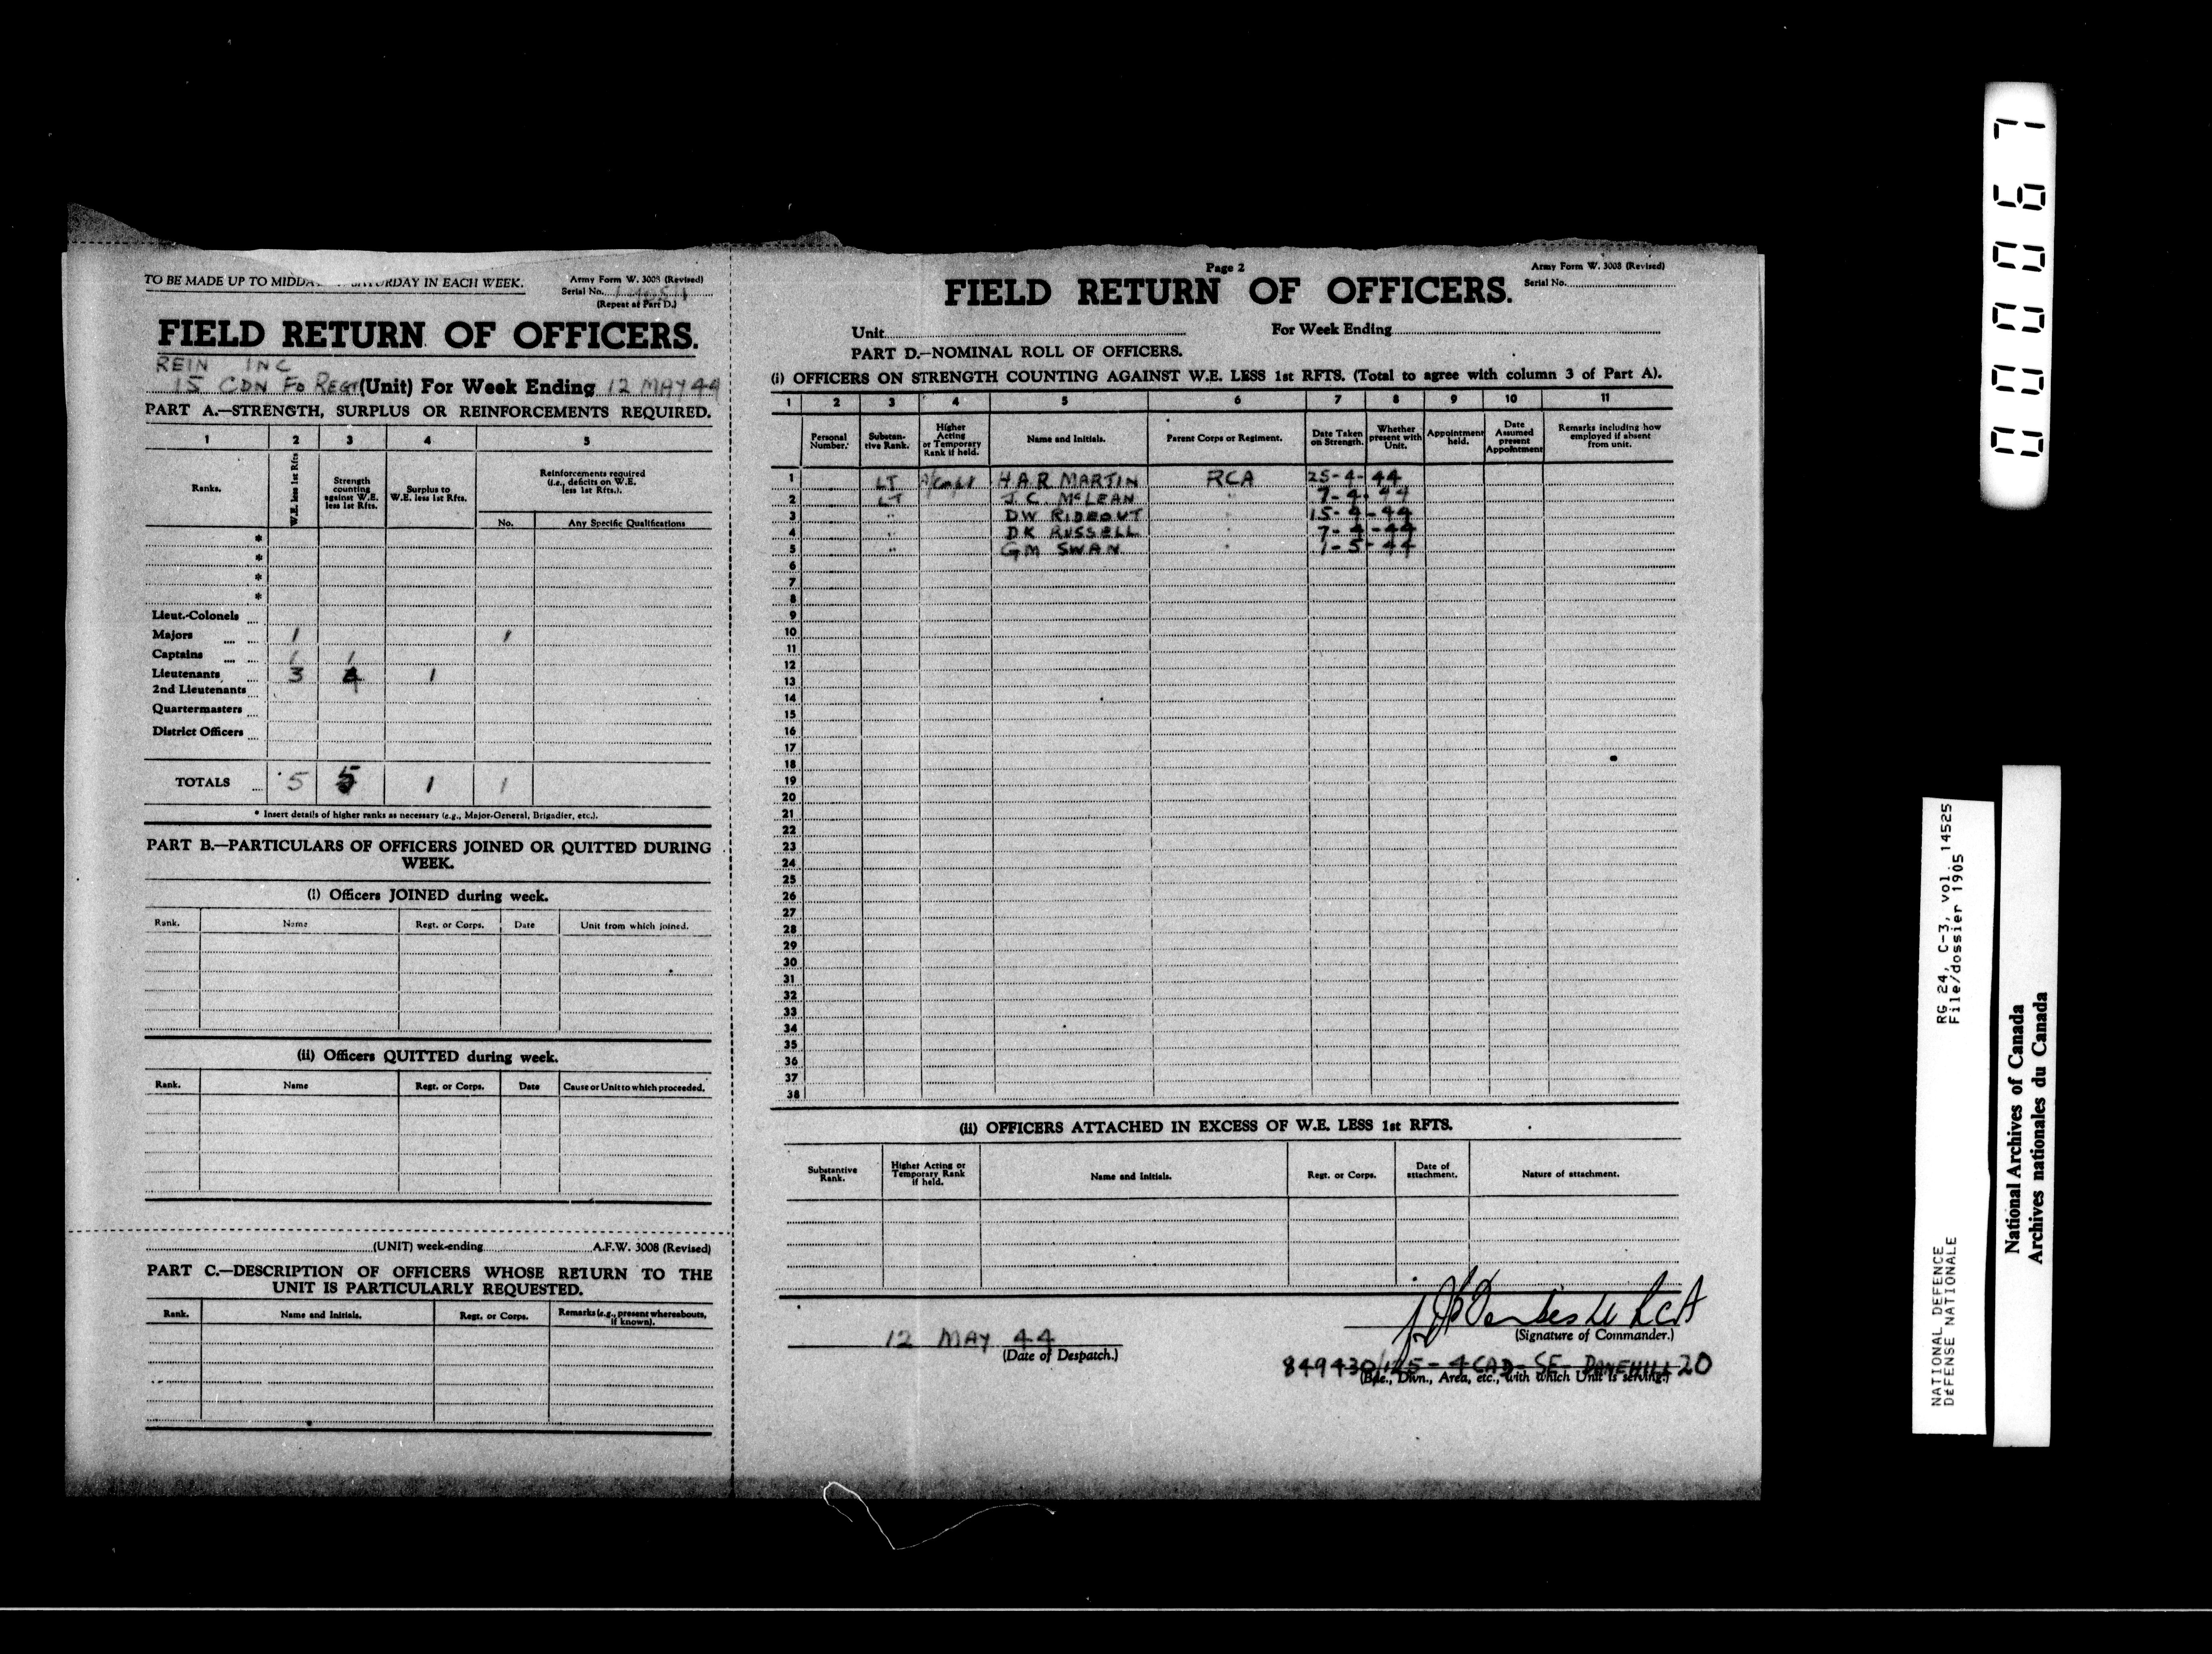 TO BE MADE UP TO MIDDAY SATURDAY IN EACH WEEK.
Army Form W. 3008 (Revised)
Serial No.
(Repeat at Part D.)
FIELD RETURN OF OFFICERS.
REIN INC
15 CDN FD REGT (Unit) For Week Ending 12 MAY 44
PART A.—STRENGTH, SURPLUS OR REINFORCEMENTS REQUIRED.
1 2 3 4 5
Ranks. W.E. less 1st Rfts Strength counting against W.E. less 1st Rfts. Surplus to W.E. less 1st Rfts. Reinforcements required (i.e., deficits on W.E. less 1st Rfts.).
No. Any Specific Qualifications
*
*
*
*
Lieut.-Colonels
Majors 1 1
Captains 1 1
Lieutenants 3 4 1
2nd Lieutenants
Quartermasters
District Officers
TOTALS 5 5 1 1
* Insert details of higher ranks as necessary (e.g., Major-General, Brigadier, etc.).
PART B.—PARTICULARS OF OFFICERS JOINED OR QUITTED DURING
WEEK.
(i) Officers JOINED during week.
Rank. Name Regt. or Corps. Date Unit from which joined.
(ii) Officers QUITTED during week.
Rank. Name Regt. or Corps. Date Cause or Unit to which proceeded.
(UNIT) week-ending A.F.W. 3008 (Revised)
PART C.—DESCRIPTION OF OFFICERS WHOSE RETURN TO THE
UNIT IS PARTICULARLY REQUESTED.
Rank. Name and Initials. Regt. or Corps. Remarks (e.g., present whereabouts, if known).
Page 2
Army Form W. 3008 (Revised)
Serial No.
FIELD RETURN OF OFFICERS.
Unit For Week Ending
PART D.—NOMINAL ROLL OF OFFICERS.
(i) OFFICERS ON STRENGTH COUNTING AGAINST W.E. LESS 1st RFTS. (Total to agree with column 3 of Part A).
1 2 3 4 5 6 7 8 9 10 11
Personal Number. Substantive Rank. Higher Acting or Temporary Rank if held. Name and Initials. Parent Corps or Regiment. Date Taken on Strength. Whether present with Unit. Appointment held. Date Assumed present Appointment Remarks including how employed if absent from unit.
1 LT A/Capt H A R MARTIN RCA 25-4-44
2 LT J. C. McLEAN " 7-4-44
3 " DW RIDEOUT 15-4-44
4 " DK RUSSELL " 7-4-44
5 " GM SWAN " 1-5-44
6
7
8
9
10
11
12
13
14
15
16
17
18
19
20
21
22
23
24
25
26
27
28
29
30
31
32
33
34
35
36
37
38
(ii) OFFICERS ATTACHED IN EXCESS OF W.E. LESS 1st RFTS.
Substantive Rank. Higher Acting or Temporary Rank if held. Name and Initials. Regt. or Corps. Date of attachment. Nature of attachment.
RCA
(Signature of Commander.)
12 MAY 44
(Date of Despatch.)
849430/125-4CAD-SE-DANEHILL 20
(Bde., Divn., Area, etc., with which Unit is serving.)
000067
RG 24, C-3, vol. 14525
File/dossier 1905
NATIONAL DEFENCE
DÉFENSE NATIONALE
National Archives of Canada
Archives nationales du Canada